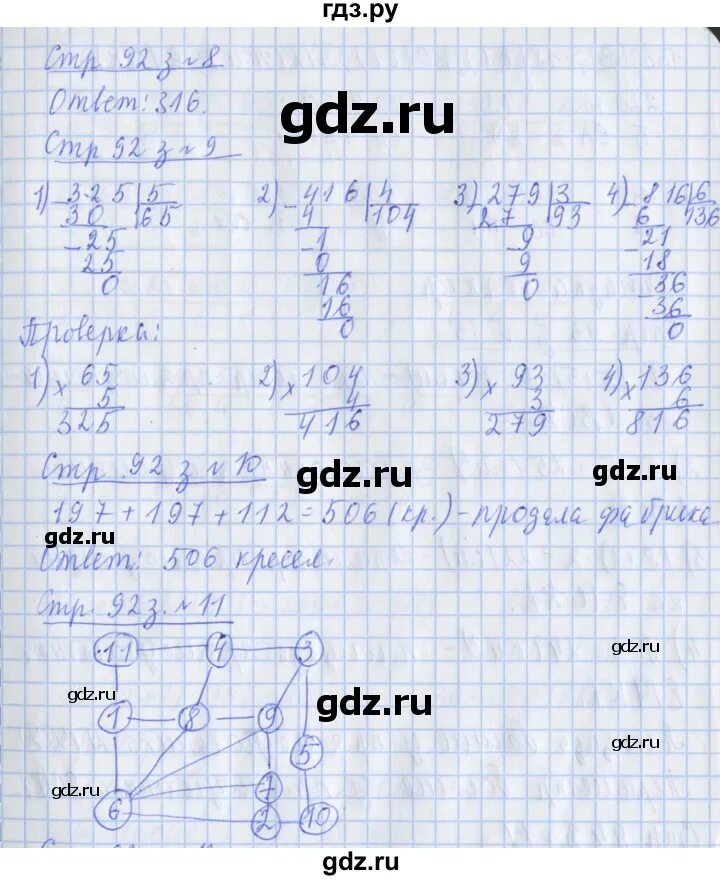 гдз.ру
Стр 92 з №8
Ответ: 316.
gdz.ru
Стр 92 з №9
1) 325 | 5 2) 416 | 4 3) 279 | 3 4) 816 | 6
30 65 4 104 27 93 6 136
-25 -1 -9 -21
25 0 9 18
0 16 0 -36
16 36
0 0
Проверка:
1) × 65 2) × 104 3) × 93 4) × 136
5 4 3 6
325 416 279 816
Стр 92 з №10
gdz.ru
gdz.ru
197 + 197 + 112 = 506 (кр.) - продала фабрика
gdz.ru
gdz.ru
Ответ: 506 кресел.
Стр. 92 з. №11
11 4 3
gdz.ru
gdz.ru
gdz.ru
1 8 9
5
gdz.ru
gdz.ru
7
6 2 10
gdz.ru